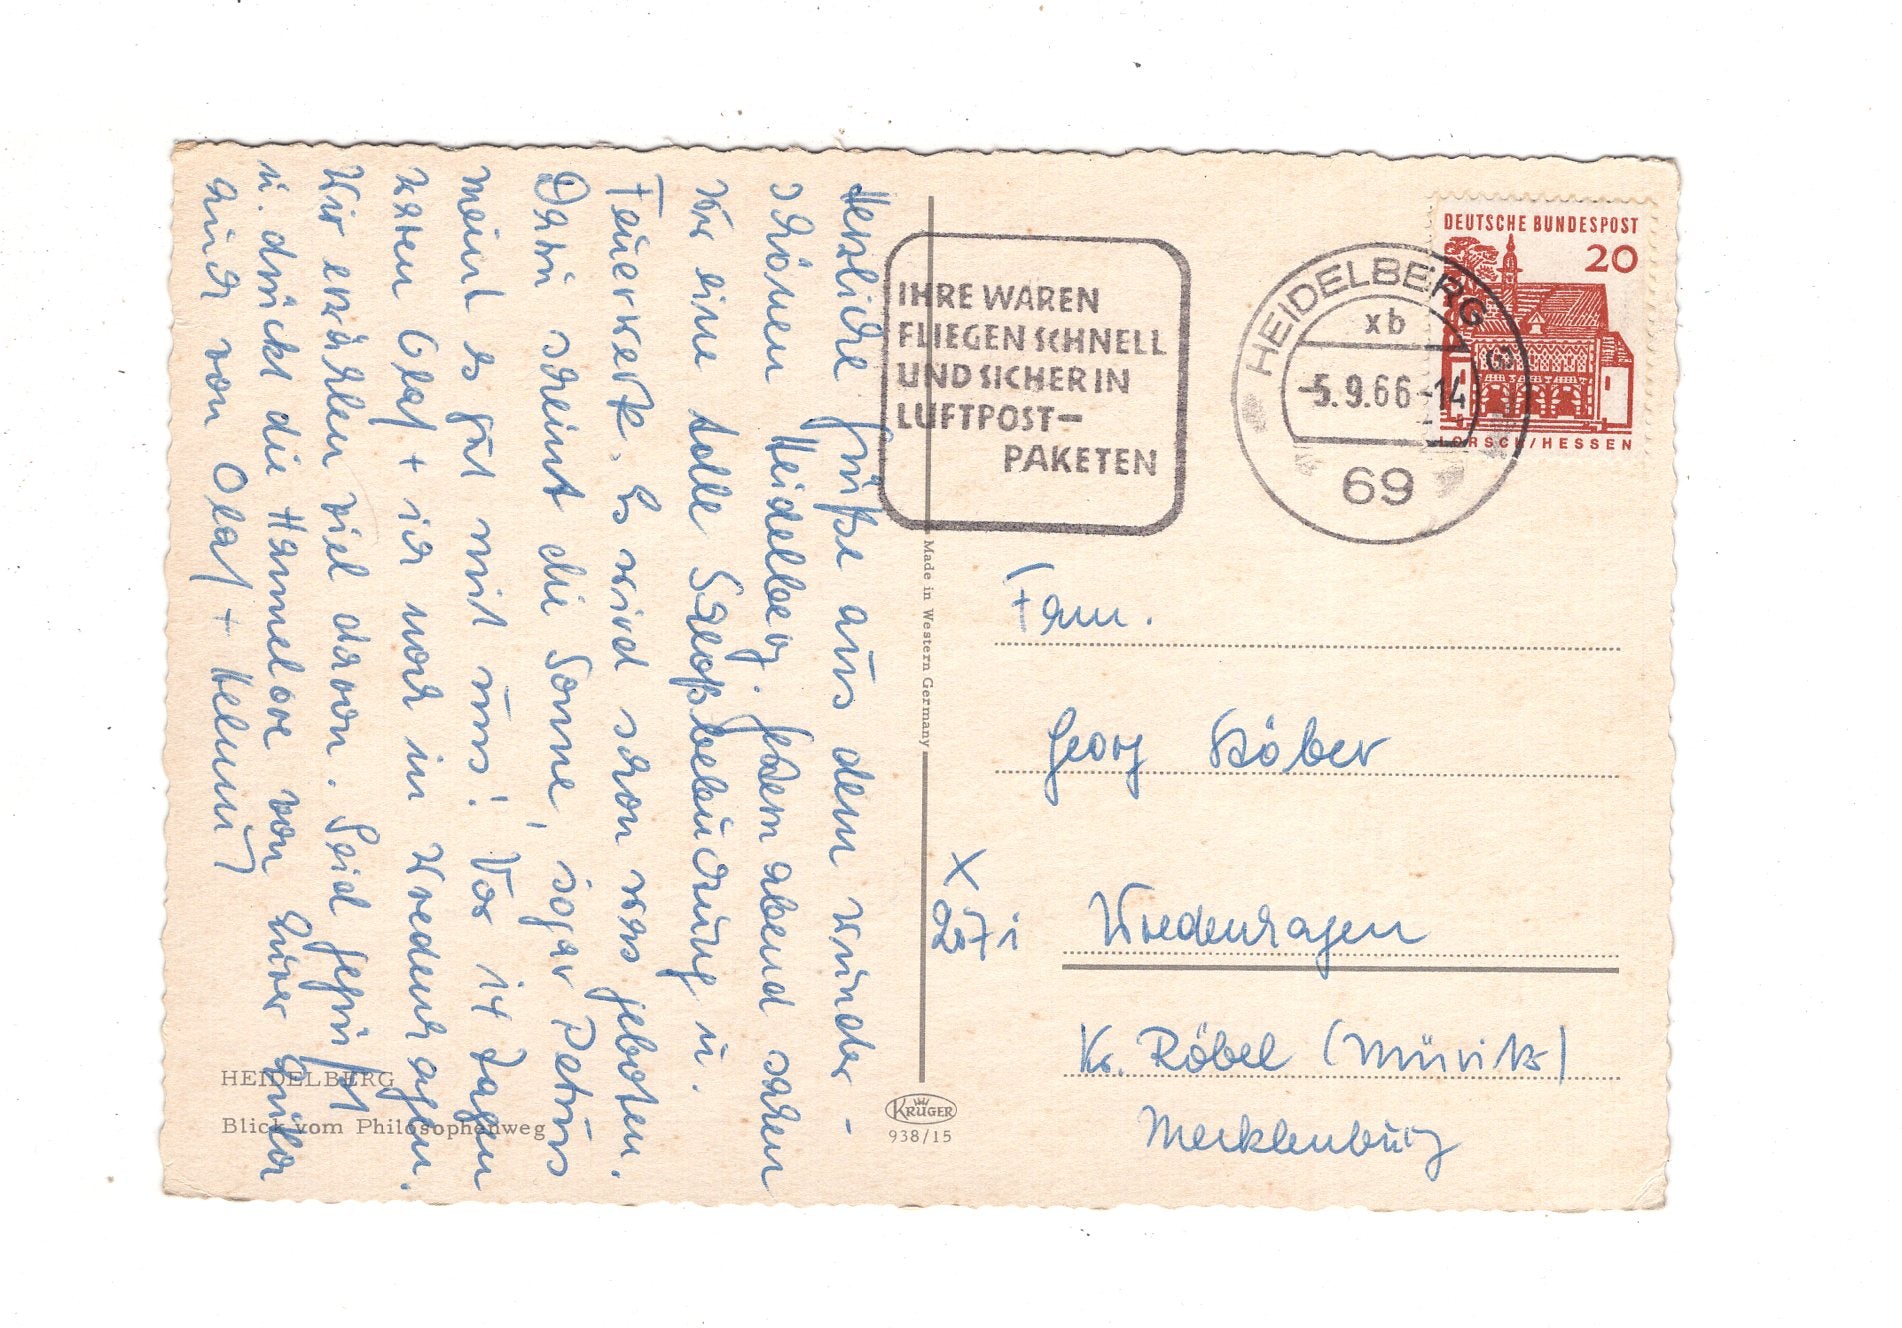 Herzliche Grüße aus dem wunder-
schönen Heidelberg. Gestern abend sahen
wir eine tolle Schloßbeleuchtung u.
Feuerwerk. Es wird schon was geboten.
Dazu scheint die Sonne, sogar Petrus
meint es gut mit uns! Vor 14 Tagen
waren Olaf + ich noch in Wredenhagen.
Wir erzählen viel davon. Seid gegrüßt
u. drückt die Hannelore von Eurer
auch von Olaf + Helmut
HEIDELBERG
Blick vom Philosophenweg
Made in Western Germany
KRÜGER
938/15
IHRE WAREN
FLIEGEN SCHNELL
UND SICHER IN
LUFTPOST-
PAKETEN
HEIDELBERG
xb
-5.9.66-14
69
DEUTSCHE BUNDESPOST
20
LORSCH/HESSEN
Fam.
Georg Stöber
X
2071
Wredenhagen
Kr. Röbel (Müritz)
Mecklenburg